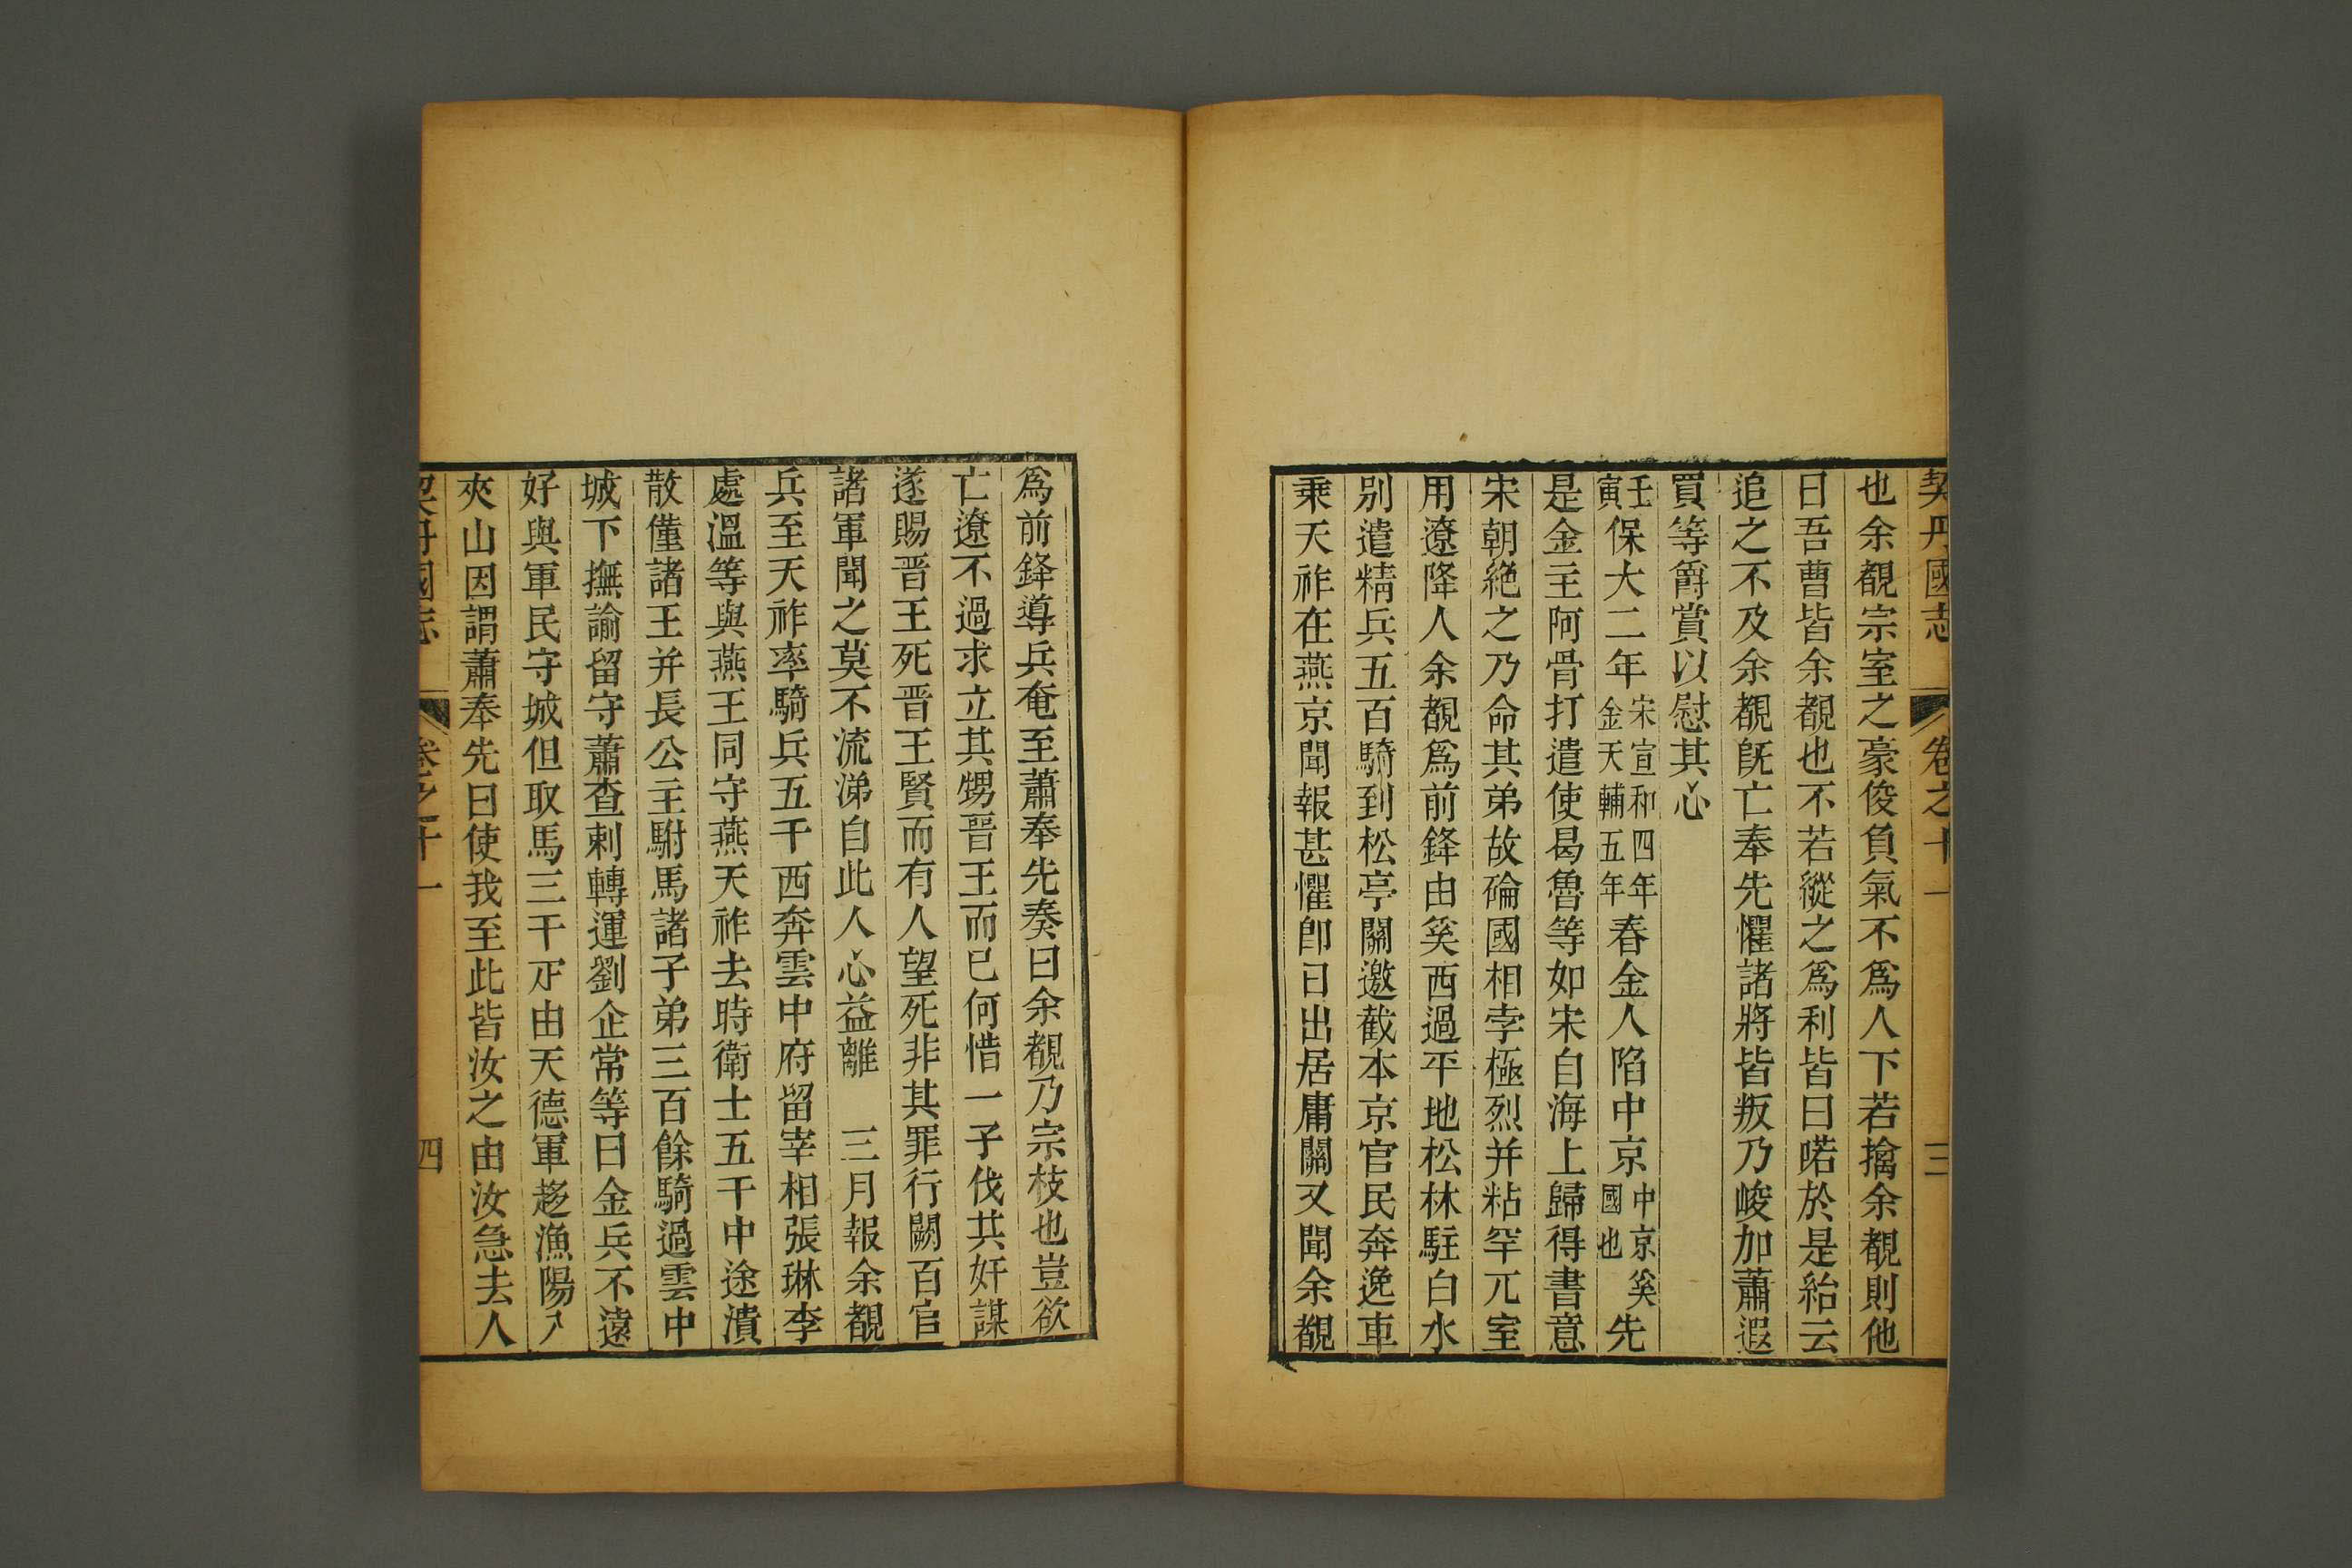 契丹國志 卷之十一 三
也余覩宗室之豪俊負氣不爲人下若擒余覩則他
日吾曹皆余覩也不若縱之爲利皆曰喏於是紿云
追之不及余覩既亡奉先懼諸將皆叛乃峻加蕭遐
買等爵賞以慰其心
壬寅保大二年宋宣和四年金天輔五年春金人陷中京中京奚國也先
是金主阿骨打遣使曷魯等如宋自海上歸得書意
宋朝絶之乃命其弟故碖國相孛極烈并粘罕兀室
用遼降人余覩爲前鋒由奚西過平地松林駐白水
別遣精兵五百騎到松亭關邀截本京官民奔逸車
乗天祚在燕京聞報甚懼卽日出居庸關又聞余覩
爲前鋒導兵奄至蕭奉先奏曰余覩乃宗枝也豈欲
亡遼不過求立其甥晉王而已何惜一子伐其奸謀
遂賜晋王死晋王賢而有人望死非其罪行闕百官
諸軍聞之莫不流涕自此人心益離 三月報余覩
兵至天祚率騎兵五千西奔雲中府留宰相張琳李
處溫等與燕王同守燕天祚去時衛士五千中途潰
散僅諸王并長公主駙馬諸子弟三百餘騎過雲中
城下撫諭留守蕭查剌轉運劉企常等曰金兵不遠
好與軍民守城但取馬三千疋由天德軍趍漁陽入
夾山因謂蕭奉先曰使我至此皆汝之由汝急去人
契丹國志 卷之十一 四